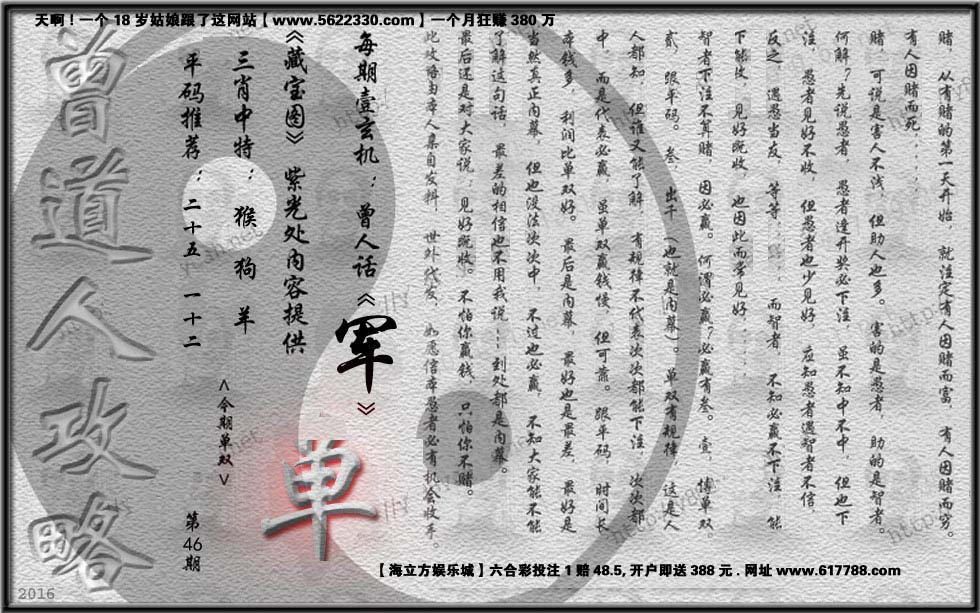 天啊！一个 18 岁姑娘跟了这网站【www.5622330.com】一个月狂赚 380 万
赌， 从有赌的第一天开始， 就注定有人因赌而富， 有人因赌而穷。
有人因赌而死．．．．．．
赌， 可说是害人不浅， 但助人也多。 害的是愚者， 助的是智者。
何解？先说愚者， 愚者逢开奖必下注， 虽不知中不中， 但也下
注， 愚者见好不收， 但愚者也少见好， 应知愚者遇智者不信，
反之， 遇愚当友， 等等．．．．．． 而智者， 不知必赢不下注， 能
下能收， 见好既收， 也因此而常见好．．．．．．
智者下注不算赌， 因必赢。 何谓必赢？必赢有叁。 壹， 博单双，
贰， 跟平码。 叁， 出千 （也就是内幕）。 单双有规律， 这是人
人都知， 但谁又能了解， 有规律不代表次次都能下注， 次次都
中， 而是代表必赢， 虽单双赢钱慢， 但可靠。 跟平码， 时间长，
本钱多， 利润比单双好。 最后是内幕， 最好也是最差， 最好是
当然真正内幕， 但也没法次次中， 不过也必赢， 不知大家能不能
了解这句话， 最差的相信也不用我说．．．到处都是内幕。
最后还是对大家说：见好既收。 不怕你赢钱， 只怕你不赌。
此攻略由本人亲自发料， 世外代友， 如愿信本愚者必有机会收手。
每期壹玄机： 曾人话《军》
《藏宝图》 紫光处内容提供
三肖中特： 猴 狗 羊
平码推荐： 二十五 一十二
<今期单双>
单
第46期
曾道人攻略
【海立方娱乐城】六合彩投注 1 赔 48.5, 开户即送 388 元 . 网址 www.617788.com
2016